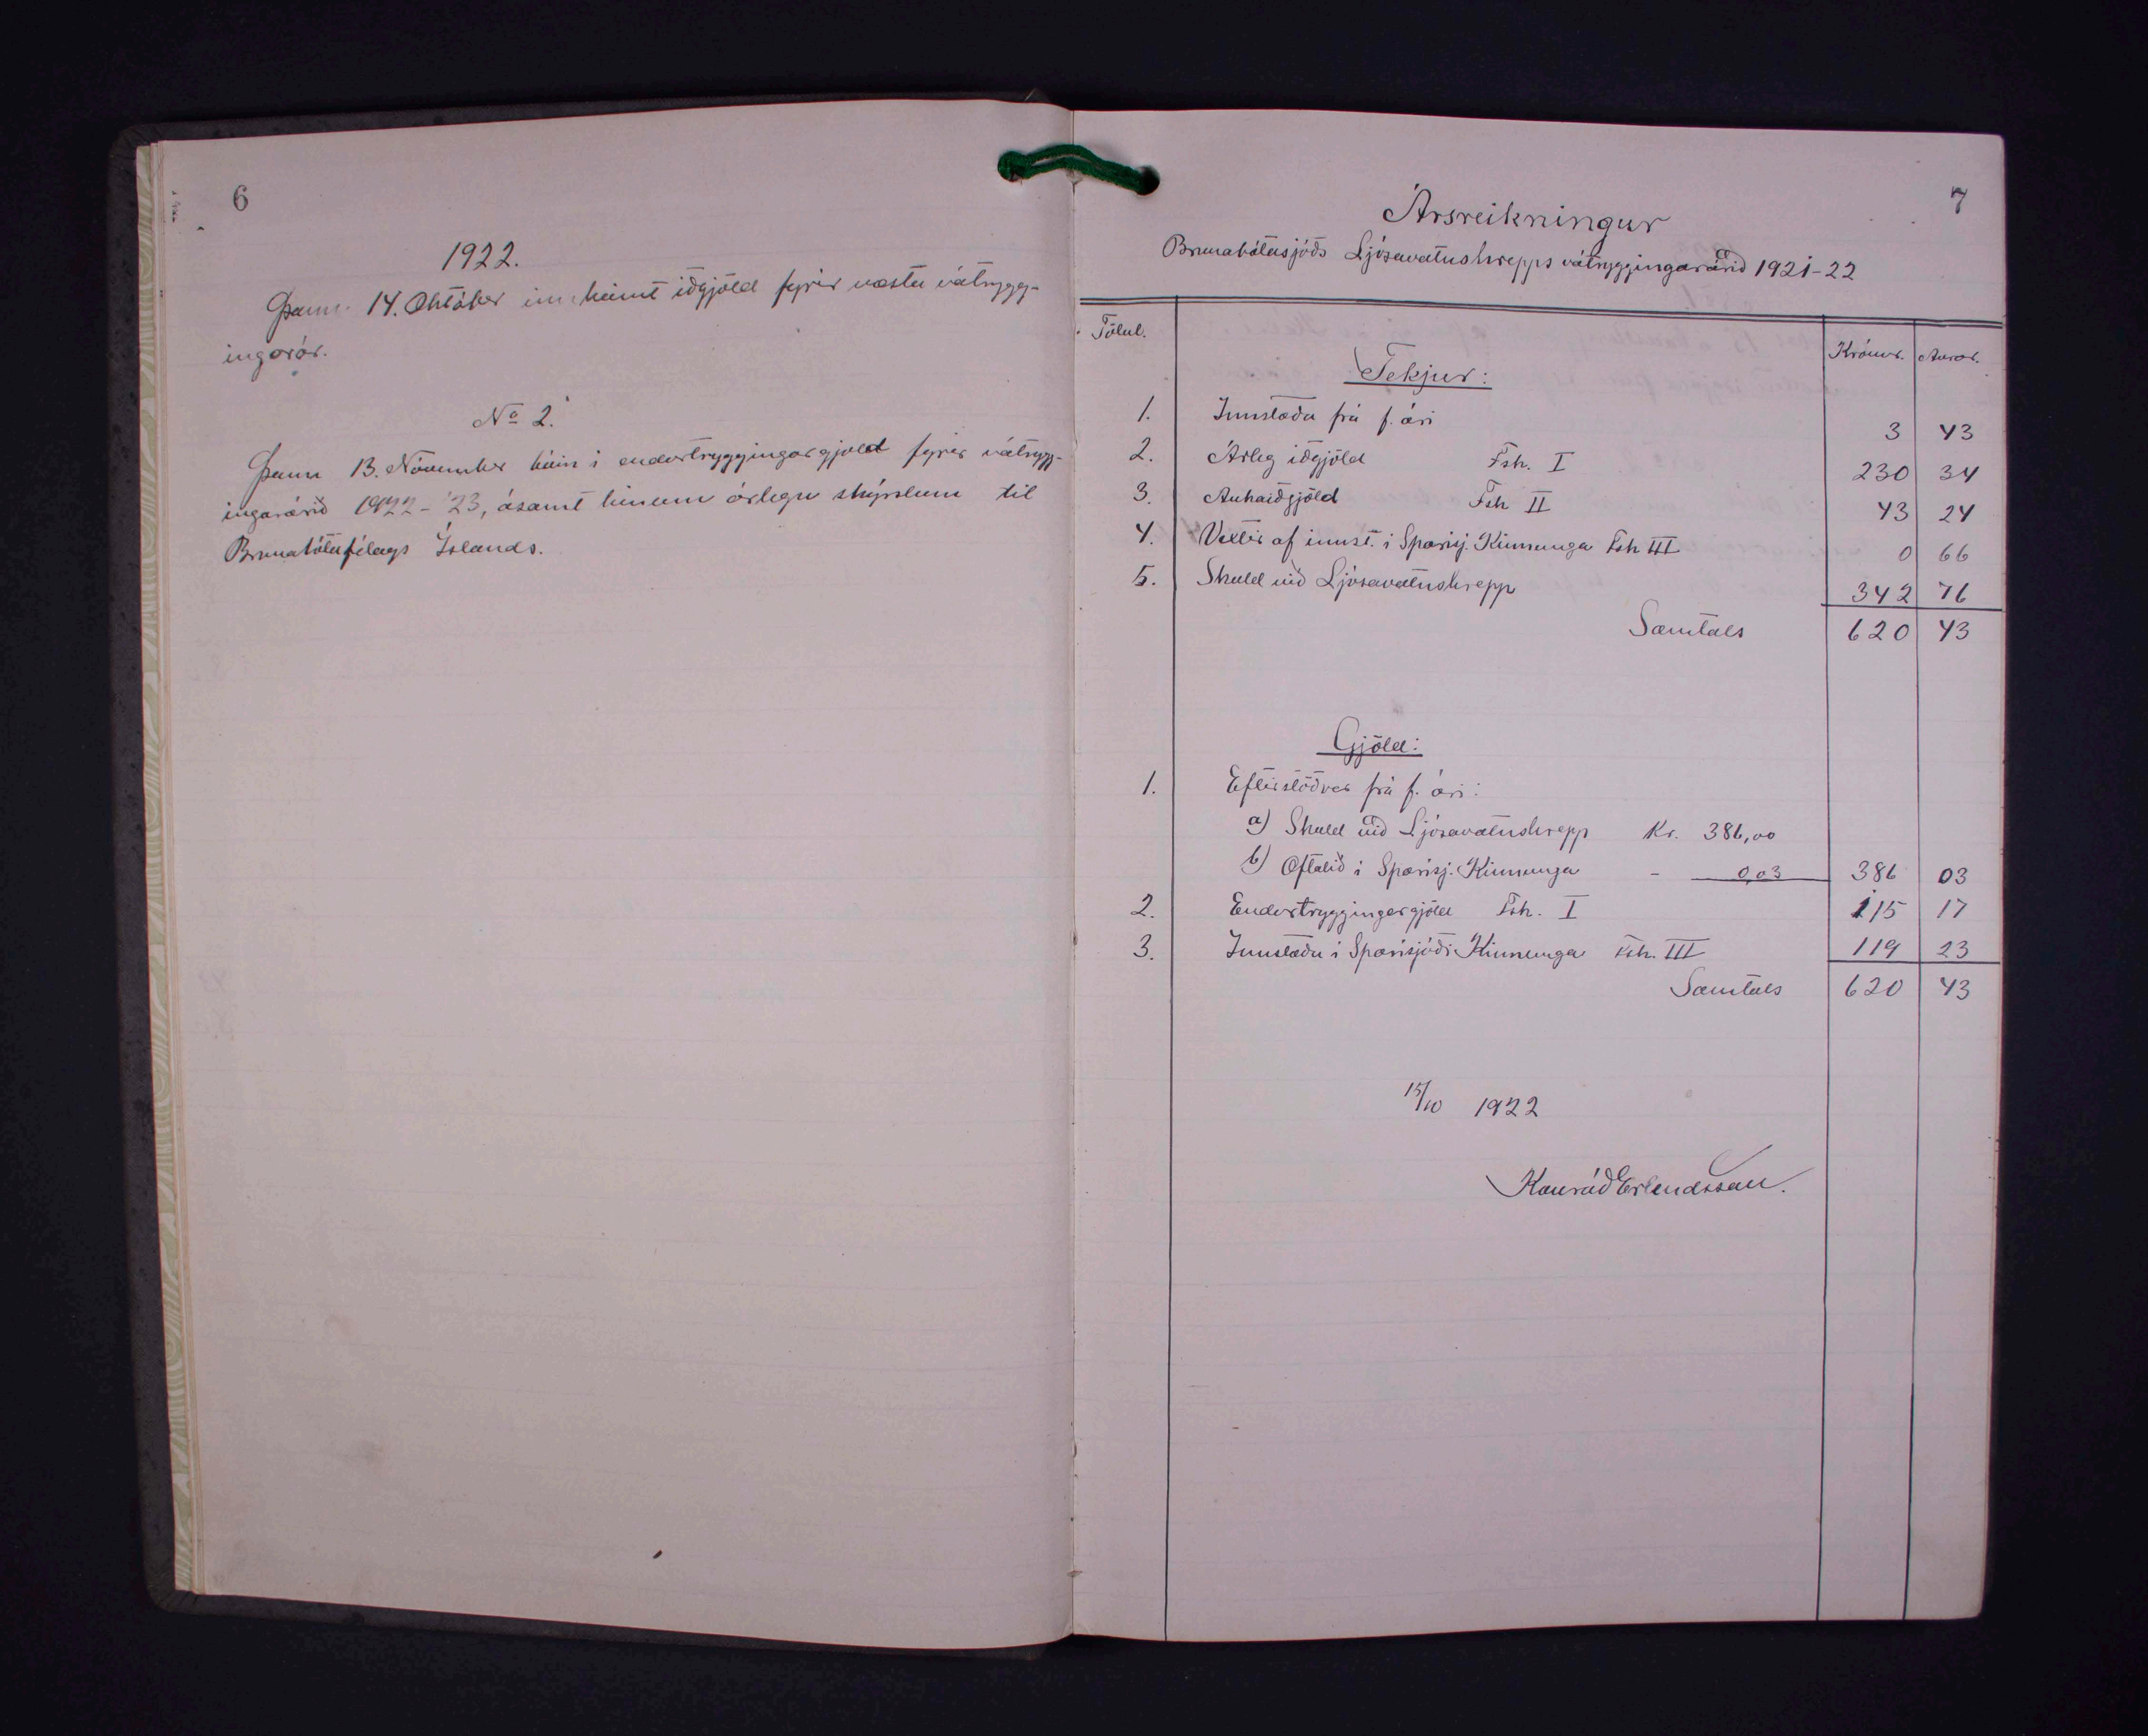 6
1922.
Þann 14. Október innheimt iðgjöld fyrir næsta vátrygg-
ingarár.
No 2.
Þann 13. Nóvember búin í endurtryggingargjöld fyrir vátrygg-
ingarárið 1922-'23, ásamt hinum árlegu skýrslum til
Brunabótafélags Íslands.
7
Ársreikningur
Brunabótasjóðs Ljósavatnshrepps vátryggingarárið 1921-22
Tölul.
Krónur. Aurar.
Tekjur:
1. Innstæða frá f. ári 3 43
2. Árleg iðgjöld Fsk. I 230 34
3. Aukaiðgjöld Fsk II 43 24
4. Vextir af innst. í Sparisj. Kinnunga Fsk III 0 66
5. Skuld við Ljósavatnshrepp 342 76
Samtals 620 43
Gjöld:
1. Eftirstöðvar frá f. ári:
a) Skuld við Ljósavatnshrepp Kr. 386,00
b) Oftalið í Sparisj. Kinnunga - 0,03 386 03
2. Endurtryggingargjöld Fsk. I 115 17
3. Innstæða í Sparisjóði Kinnunga Fsk. III 119 23
Samtals 620 43
15/10 1922
Konráð Erlendsson.